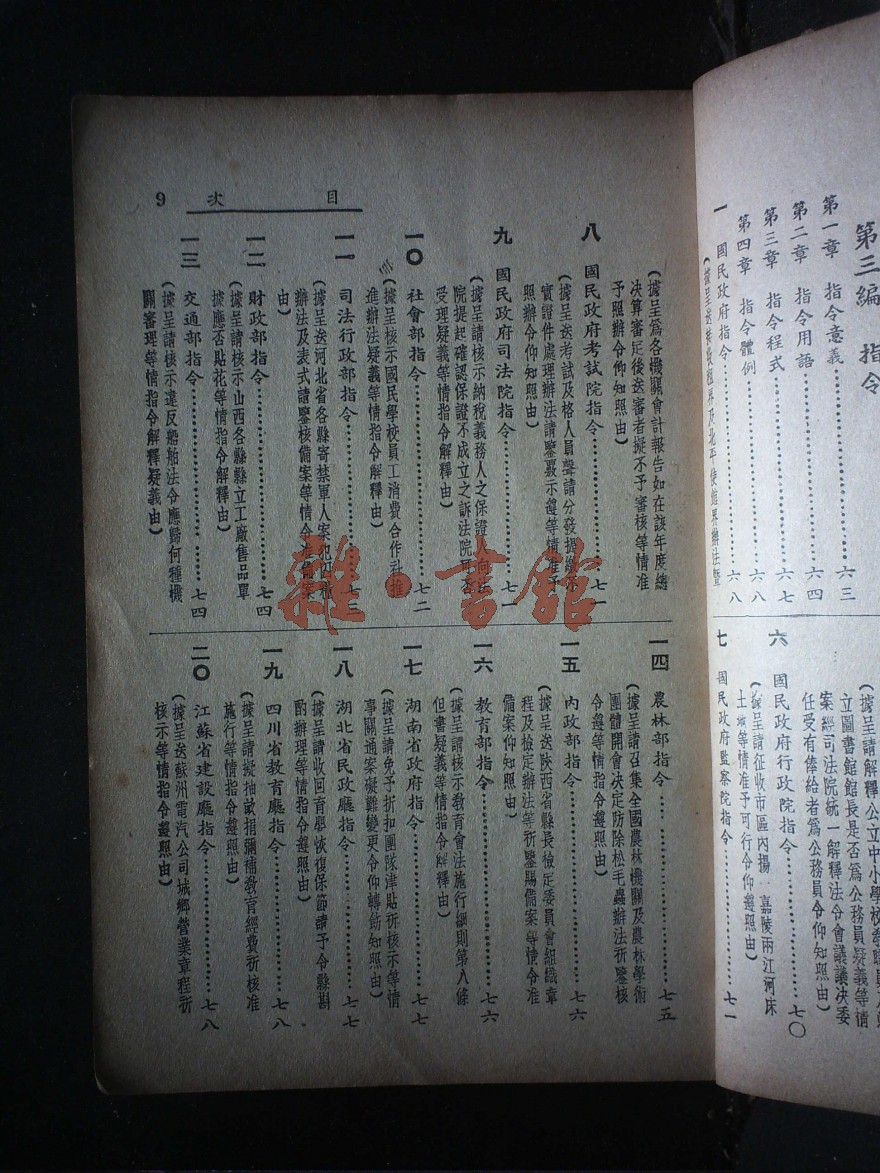 第三編 指令
第一章 指令意義……六三
第二章 指令用語……六四
第三章 指令程式……六七
第四章 指令體例……六八
一 國民政府指令……六八
立圖書館館長是否爲公務員疑義等情
案經司法院統一解釋法令會議議决委
任受有俸給者爲公務員令仰知照由)
六 國民政府行政院指令……七〇
(據呈請征收市區內揚 嘉陵兩江河床
土地等情准予可行令仰遵照由)
七 國民政府監察院指令……七一
目次 9
(據呈爲各機關會計報告如在該年度總
决算審定後送審者擬不予審核等情准
予照辦令仰知照由)
八 國民政府考試院指令……七一
(據呈送考試及格人員聲請分發
實證件處理辦法請鑒覈示遵等情准予
照辦令仰知照由)
九 國民政府司法院指令……七一
(據呈請核示納稅義務人之保證人向法
院提起確認保證不成立之訴法院可否
受理疑義等情指令解釋由)
一〇 社會部指令……七二
(據呈核示國民學校員工消費合作社推
進辦法疑義等情指令解釋由)
一一 司法行政部指令……七三
(據呈送河北省各縣寄禁軍人案犯囚糧
辦法及表式請鑒核備案等情令准備案
由)
一二 財政部指令……七四
(據呈請核示山西各縣縣立工廠售品單
據應否貼花等情指令解釋由)
一三 交通部指令……七四
(據呈請核示違反船舶法令應歸何種機
關審理等情指令解釋疑義由)
一四 農林部指令……七五
(據呈請召集全國農林機關及農林學術
團體開會決定防除松毛蟲辦法祈鑒核
令遵等情指令遵照由)
一五 內政部指令……七六
(據呈送陝西省縣長檢定委員會組織章
程及檢定辦法等祈鑒賜備案等情令准
備案仰知照由)
一六 教育部指令……七六
(據呈請核示教育會法施行細則第八條
但書疑義等情指令解釋由)
一七 湖南省政府指令……七七
(據呈請免予折扣團隊津貼祈核示等情
事關通案礙難變更令仰轉飭知照由)
一八 湖北省民政廳指令……七七
(據呈請收回育嬰恢復保節請予令縣斟
酌辦理等情指令遵照由)
一九 四川省教育廳指令……七八
(據呈請擬抽畝捐彌補教育經費祈核准
施行等情指令遵照由)
二〇 江蘇省建設廳指令……七八
(據呈送蘇州電汽公司城鄉營業章程祈
核示等情指令遵照由)
雜·書館